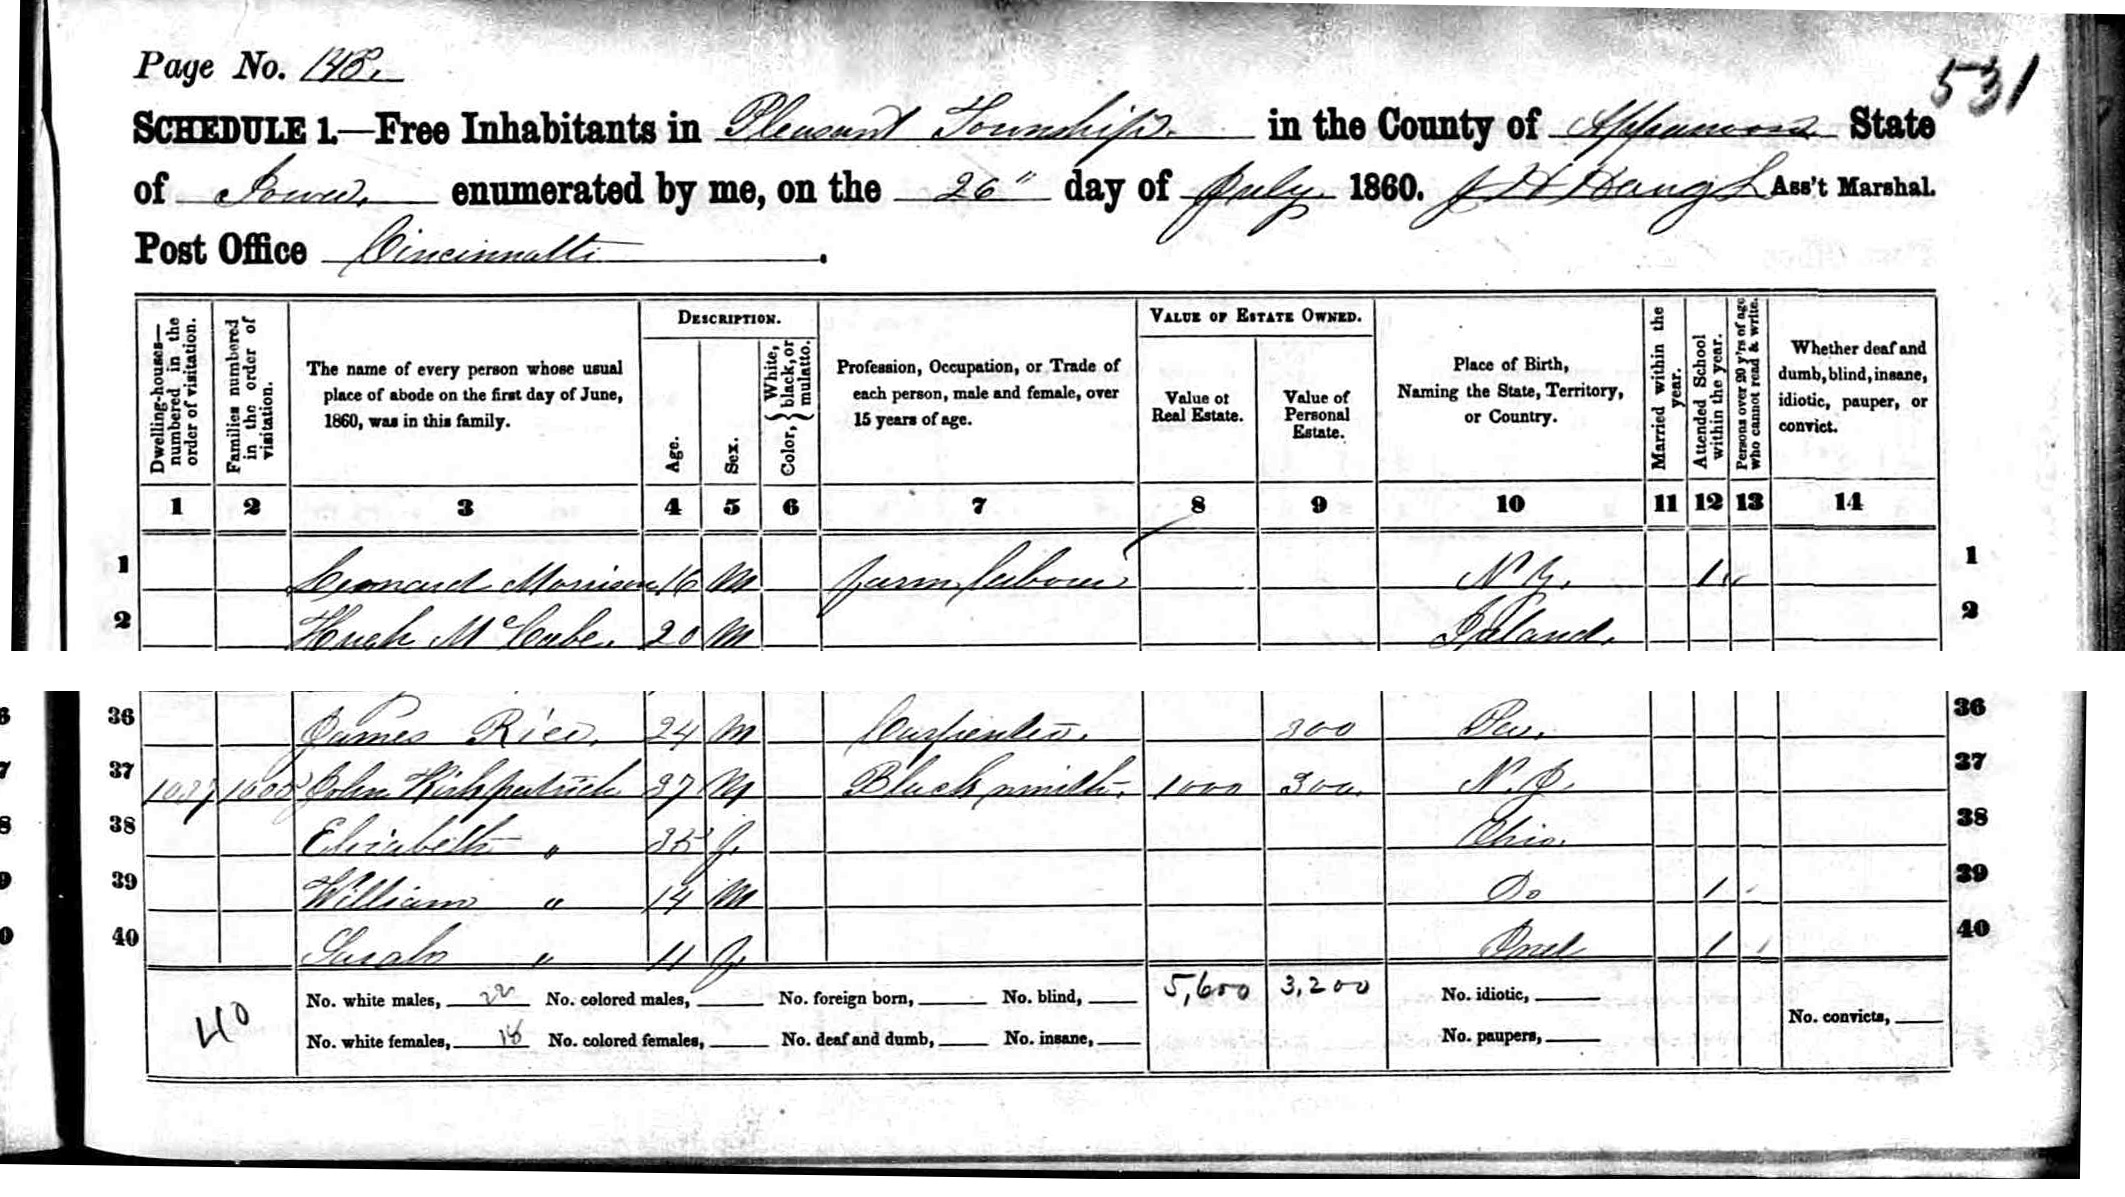 Page No. 148.
531
SCHEDULE 1.—Free Inhabitants in Pleasant Township. in the County of Appanoose State
of Iowa. enumerated by me, on the 26" day of July. 1860. Ass't Marshal.
Post Office Cincinnatti.
Dwelling-houses—numbered in the order of visitation.
Families numbered in the order of visitation.
The name of every person whose usual place of abode on the first day of June, 1860, was in this family.
DESCRIPTION.
Age.
Sex.
Color, } White, black, or mulatto.
Profession, Occupation, or Trade of each person, male and female, over 15 years of age.
VALUE OF ESTATE OWNED.
Value of Real Estate.
Value of Personal Estate.
Place of Birth, Naming the State, Territory, or Country.
Married within the year.
Attended School within the year.
Persons over 20 y'rs of age who cannot read & write.
Whether deaf and dumb, blind, insane, idiotic, pauper, or convict.
1 2 3 4 5 6 7 8 9 10 11 12 13 14
1 Leonard Morrison 16 M farm labour N Y. 1 1
2 Hugh McCabe. 20 M Ireland. 2
36 James Rice. 24 M Carpenter. 300 Pa. 36
37 John Kirkpatrick 37 M Blacksmith. 1000 300. N. J. 37
38 Elizabeth " 35 f. Ohio. 38
39 William " 14 M Do 1 39
40 Sarah " 11 f. Ind 1 40
40
No. white males, 22 No. colored males, No. foreign born, No. blind, 5,600 3,200 No. idiotic,
No. white females, 18 No. colored females, No. deaf and dumb, No. insane, No. paupers,
No. convicts,